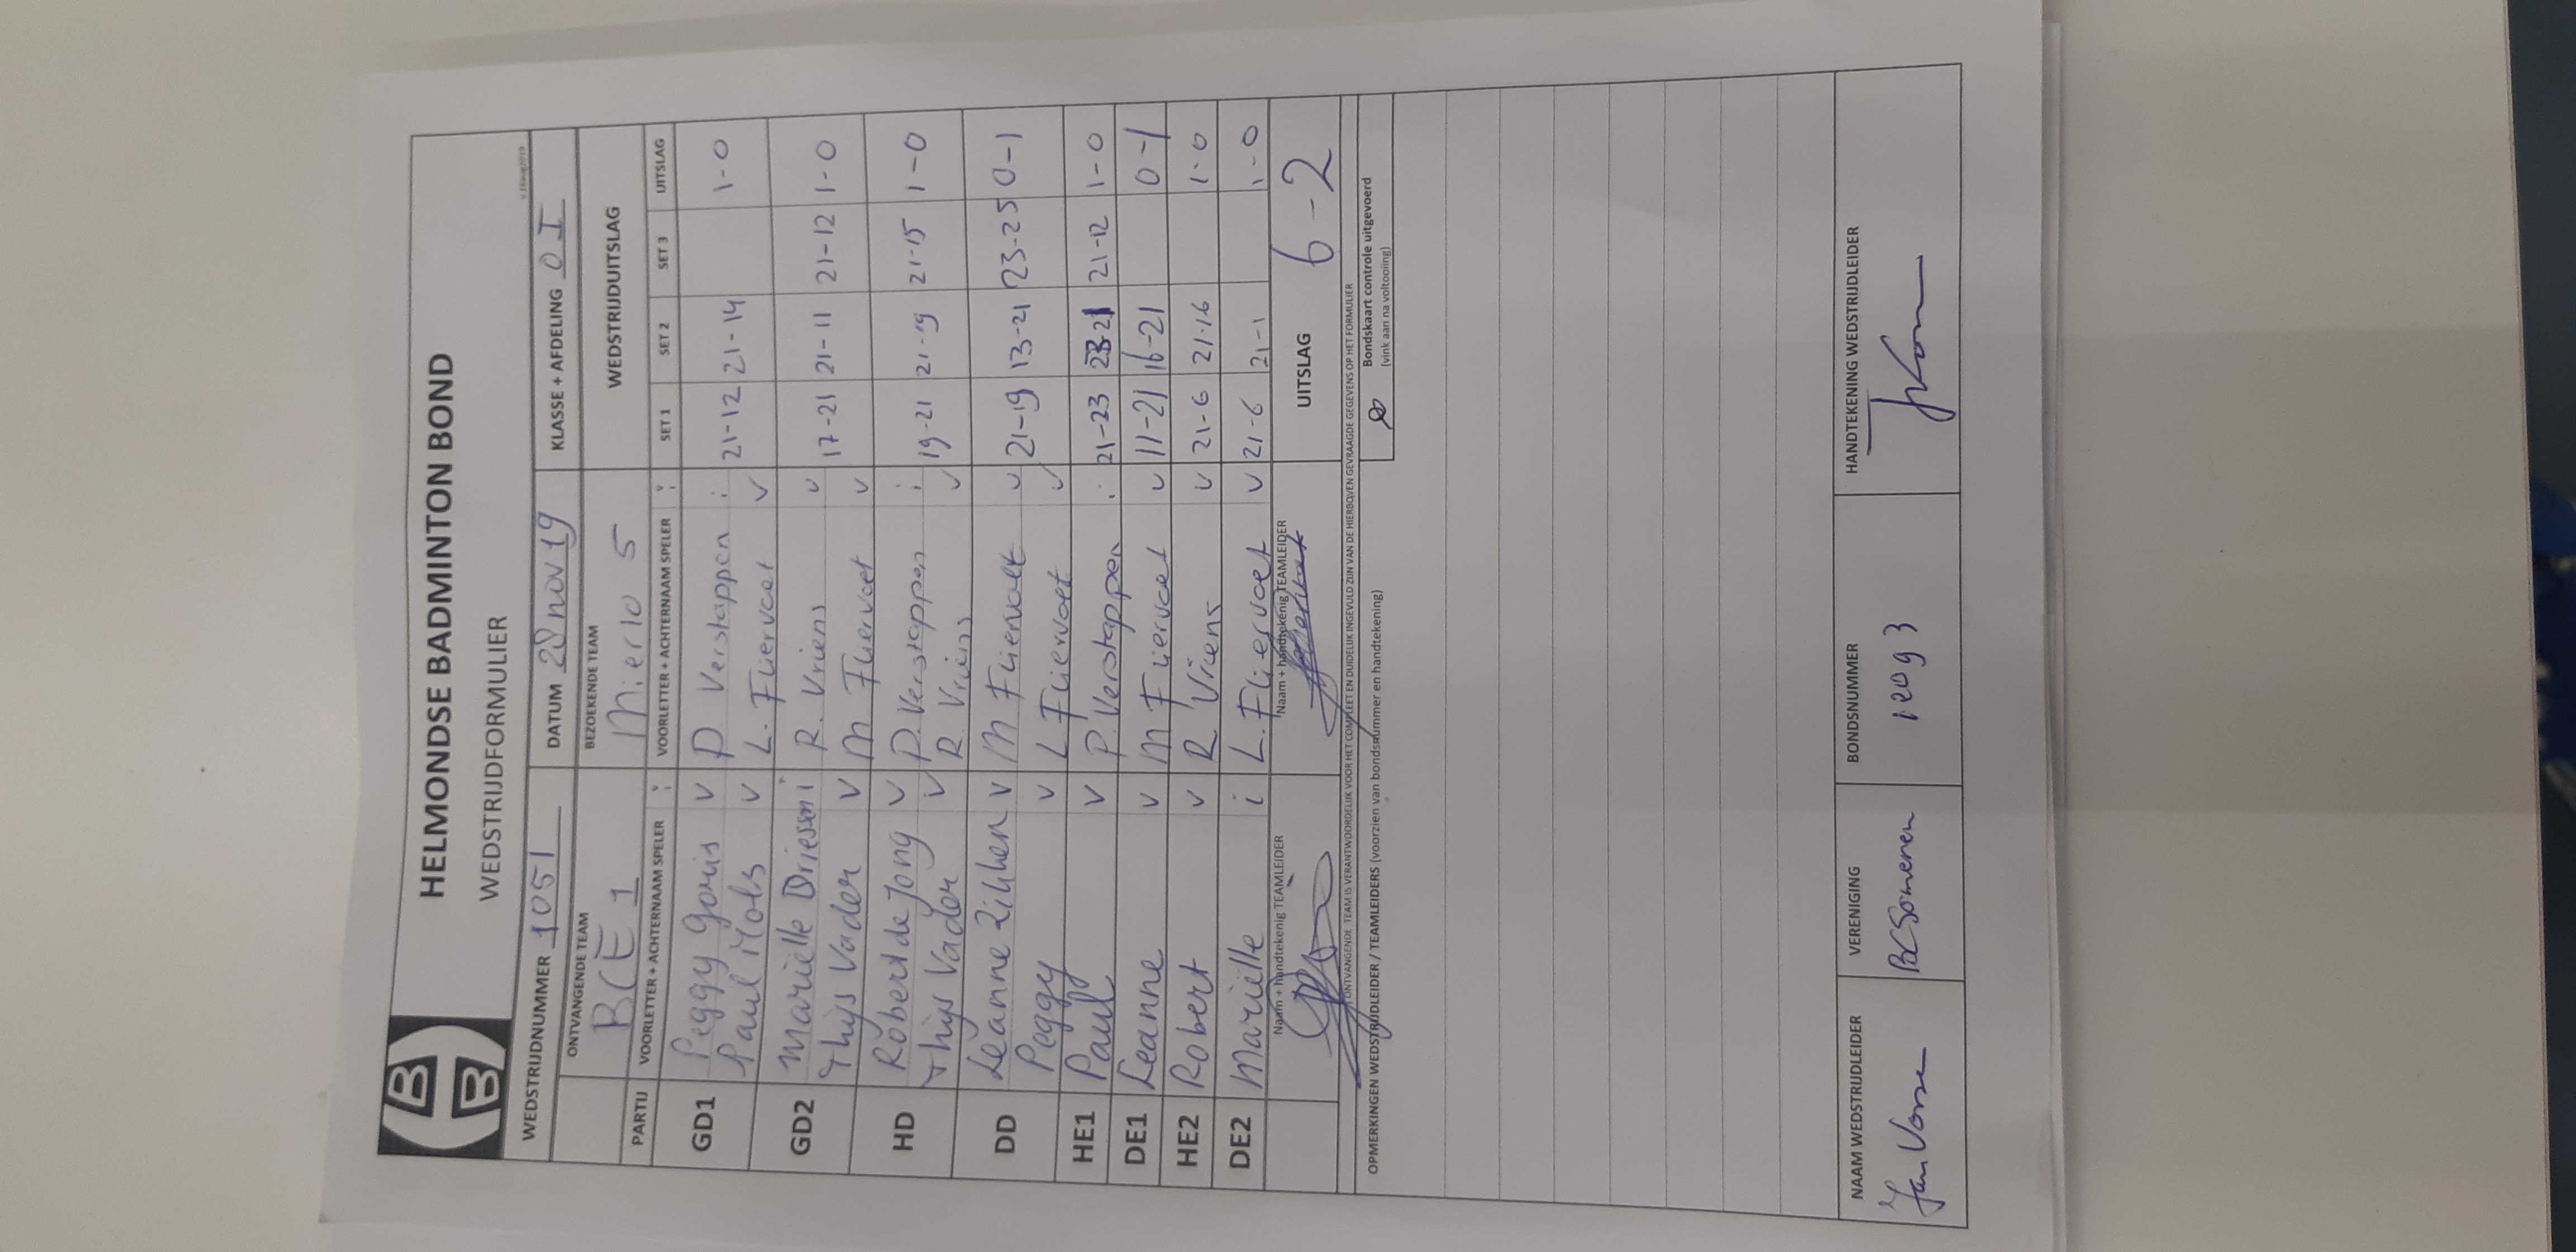 HELMONDSE BADMINTON BOND
WEDSTRIJDFORMULIER
v 19aug2019
WEDSTRIJDNUMMER 1051 DATUM 28 nov 19 KLASSE + AFDELING O I
ONTVANGENDE TEAM BEZOEKENDE TEAM WEDSTRIJDUITSLAG
BCE 1 Mierlo 5
PARTIJ VOORLETTER + ACHTERNAAM SPELER V VOORLETTER + ACHTERNAAM SPELER V SET 1 SET 2 SET 3 UITSLAG
GD1 Peggy Goris v P. Verstappen i 21-12 21-14 1-0
Paul Mols v L. Fliervoet v
GD2 Mariëlle Driessen i R. Vriens v 17-21 21-11 21-12 1-0
Thijs Vader v M Fliervoet v
HD Robert de Jong v P. Verstappen i 19-21 21-19 21-15 1-0
Thijs Vader v R. Vriens v
DD Leanne v M Fliervoet v 21-19 13-21 23-25 0-1
Peggy v L Fliervoet v
HE1 Paul v P. Verstappen i 21-23 23-21 21-12 1-0
DE1 Leanne v M Fliervoet v 11-21 16-21 0-1
HE2 Robert v R Vriens v 21-6 21-16 1-0
DE2 Mariëlle i L. Fliervoet v 21-6 21-1 1-0
Naam + handtekenig TEAMLEIDER Naam + handtekenig TEAMLEIDER UITSLAG 6-2
ONTVANGENDE TEAM IS VERANTWOORDELIJK VOOR HET COMPLEET EN DUIDELIJK INGEVULD ZIJN VAN DE HIERBOVEN GEVRAAGDE GEGEVENS OP HET FORMULIER
OPMERKINGEN WEDSTRIJDLEIDER / TEAMLEIDERS (voorzien van bondsnummer en handtekening) Bondskaart controle uitgevoerd
(vink aan na voltooiing)
NAAM WEDSTRIJDLEIDER VERENIGING BONDSNUMMER HANDTEKENING WEDSTRIJDLEIDER
Jan BC Someren 12093